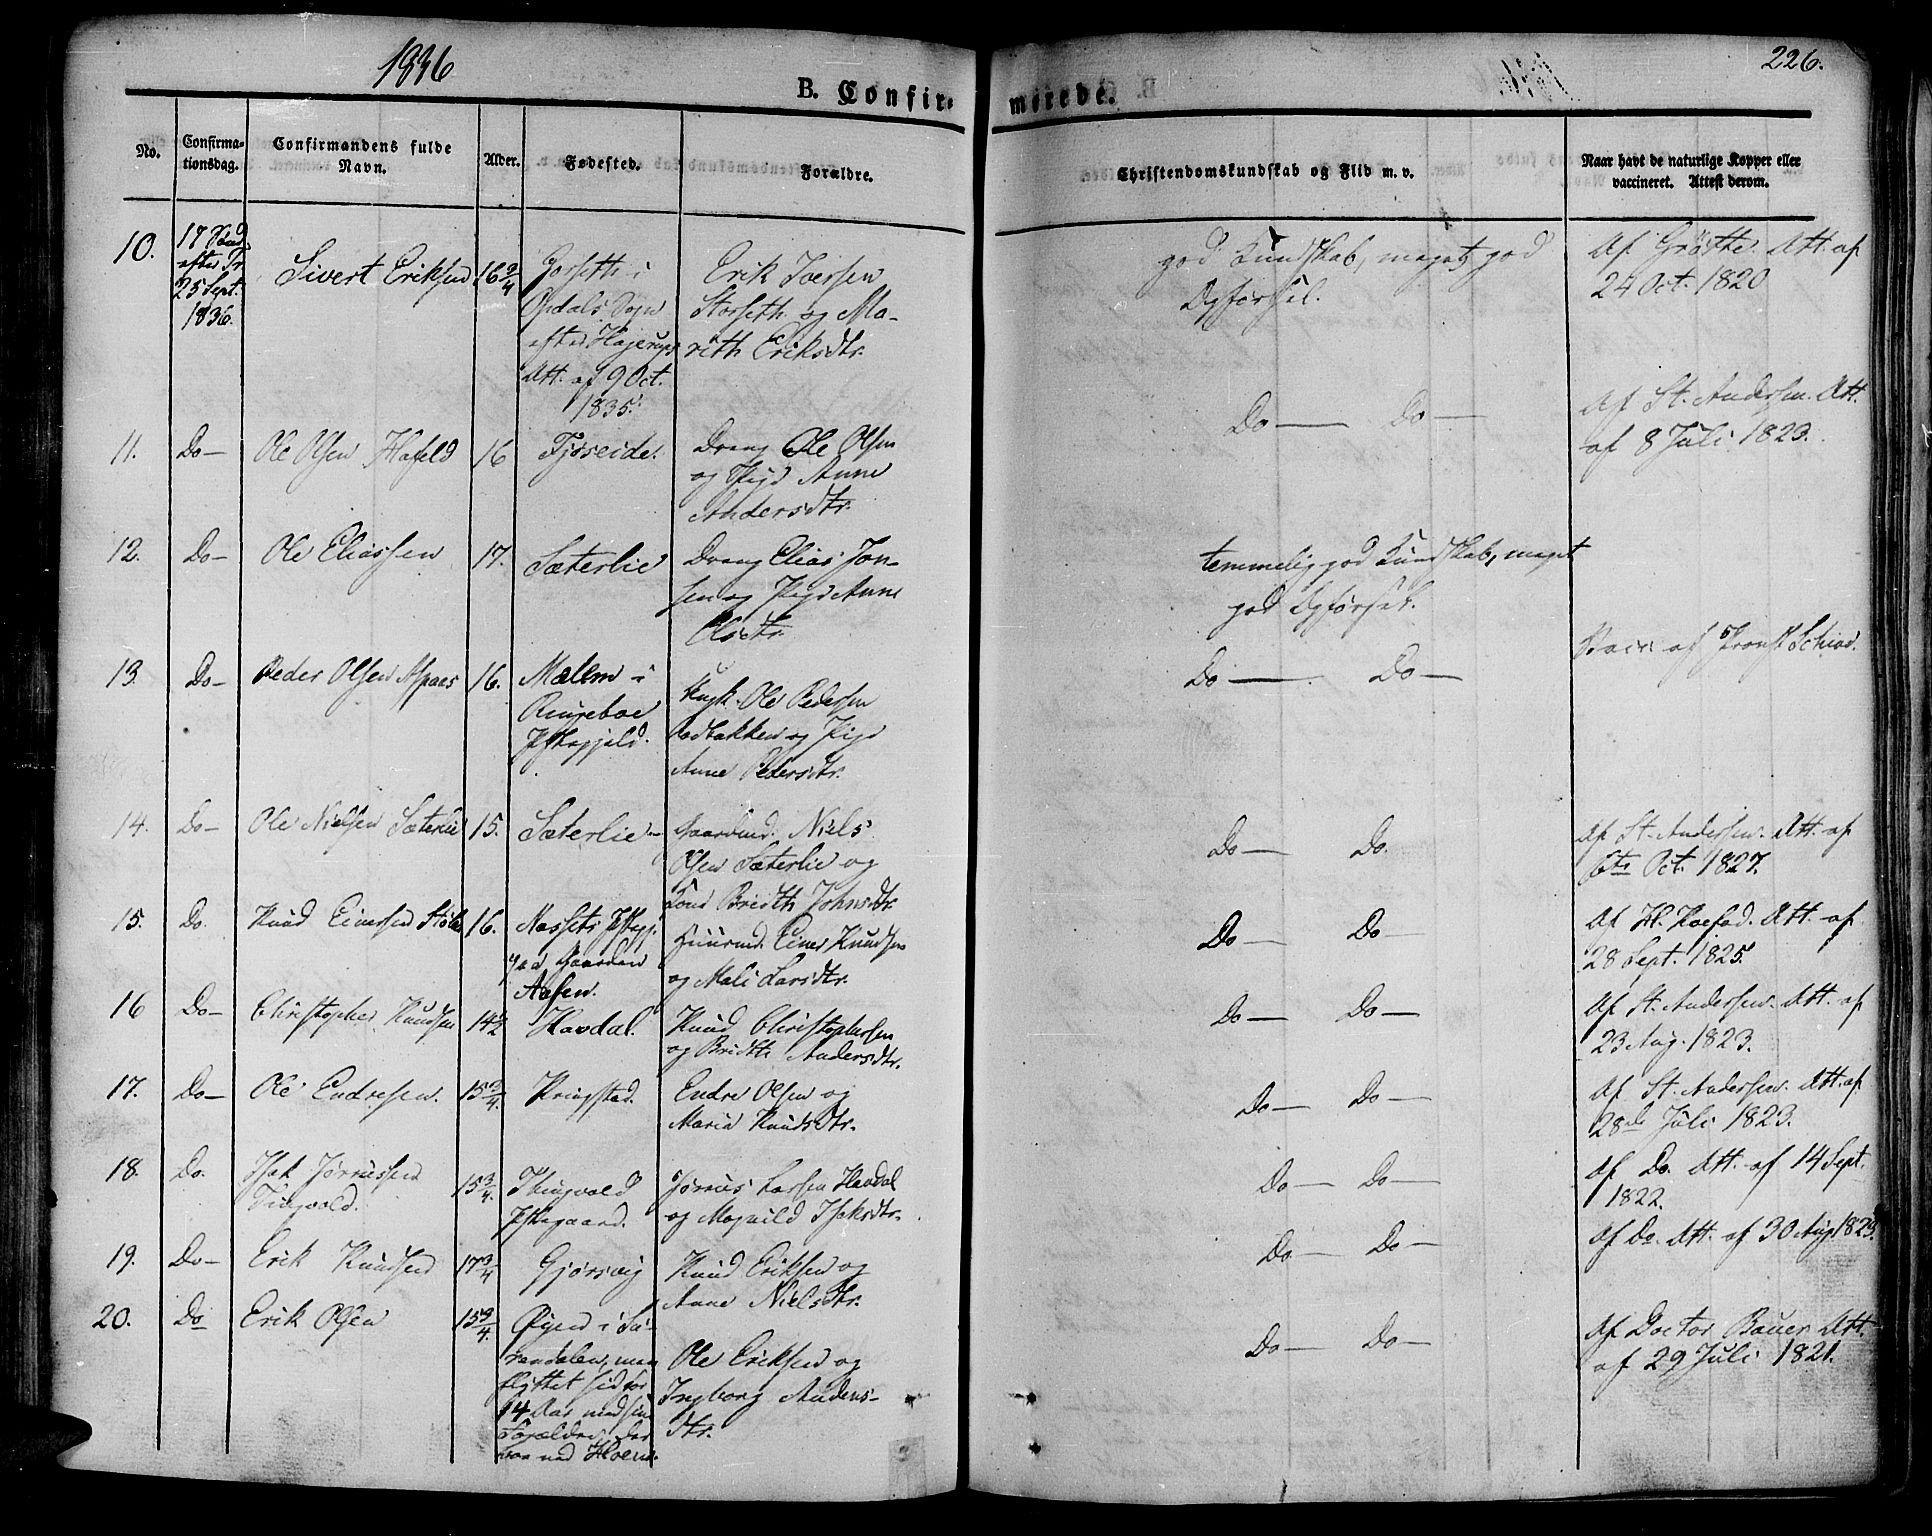 1836
226.
B. Confir-
merede.
No.
Confirma-
tionsdag.
Confirmandens fulde
Navn.
Alder.
Fødested.
Forældre.
Christendomskundskab og Flid m. v.
Naar havt de naturlige Kopper eller
vaccineret. Attest derom.
10.
17 Sønd.
efter Tr.
25 Sept.
1836.
Sivert Eriksen
16 3/4
i
Opdals Sogn
efter Hagerups
Att. af 9 Oct.
1835.
Erik Iversen
Storseth og Ma-
rith Eriksdtr.
god Kundskab, meget god
Opførsel.
Af Grøtte. Att. af
24 Oct. 1820
11.
Do
Ole Olsen Hafeld
16
Fjøseide.
Dreng Ole Olsen
og Pige Anne
Andersdtr.
Do Do
Af St. Andersen. Att.
af 8 Juli 1823.
12.
Do
Ole Eliassen
17.
Sæterlie
Dreng Elias Jon-
sen og Pige Anne
Olsdtr.
temmelig god Kundskab, meget
god Opførsel.
13.
Do
Peder Olsen Aspaas
16.
Mælem i
Ringeboe
Præstegjeld.
Ole Pedersen
og Pige
Anne Pedersdtr.
Do Do
af Provst
14.
Do
Ole Nielsen Sæterlie
15.
Sæterlie
Gaardmd. Niels
Olsen Sæterlie og
Kone Bredth Johnsdtr.
Do Do.
Af St. Andersen. Att. af
6te Oct. 1827.
15.
Do.
Knud Einersen
16.
Nessets Præstegj.
paa Gaarden
Aasen.
Huusmd. Einer Knudsen
og Mali Larsdtr.
Do Do
Af H. Koefod. Att. af
28 Sept. 1825.
16
Do
Christopher Knudsen
14 1/2
Havdal.
Knud Christophersen
og Bridth Andersdtr.
Do Do
Af St. Andersen. Att. af
23 Aug. 1823.
17.
Do
Ole Endresen.
15 3/4.
Kringstad.
Endre Olsen og
Maria Knudsdtr.
Do Do
Af St. Andersen. Att. af
28de Juli 1823.
18.
Do.
Isak Jørnssen
Tingvold.
15 3/4.
Tingvold
Præstegaard.
Larsen Havdal
og Magnild Isaksdtr.
Do Do
Af Do. Att. af 14 Sept.
1822.
19.
Do
Erik Knudsen
17 3/4
Gjørsvig
Knud Eriksen og
Anne Nielsdtr.
Do Do
Af Do. Att. af 30 Aug. 1823.
20.
Do
Erik Olsen
15 3/4.
Øyen i Su-
rendalen, men
flyttet hid for
14 Aar med sine
Forældre der
boe ved
Ole Eriksen og
Ingborg Anders-
dtr.
Do Do
Af Doctor Bauer Att.
af 29 Juli 1821.